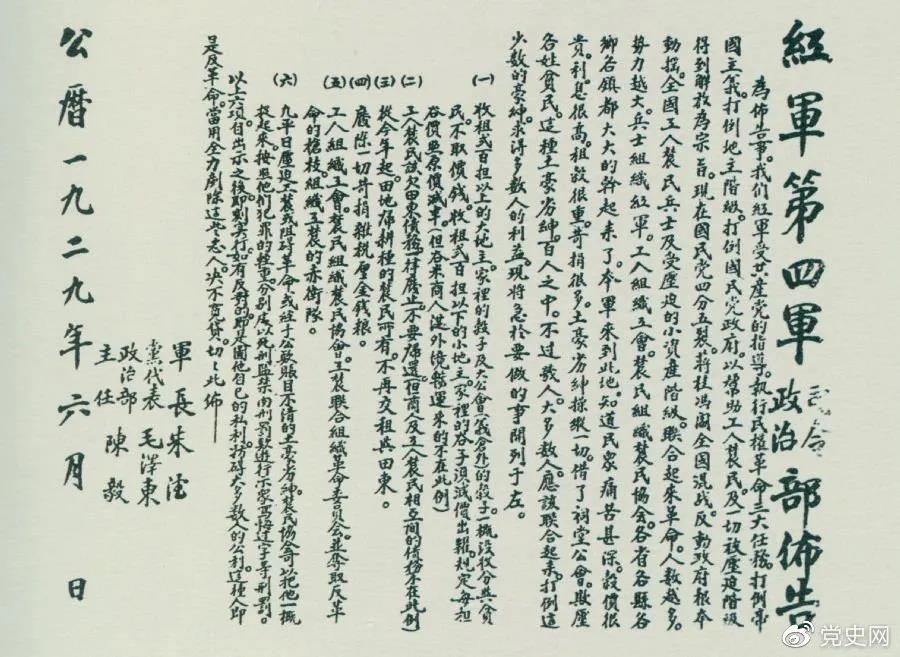 紅軍第四軍司令政治部佈告
為佈告事。我們紅軍受共產黨的指導。執行民權革命三大任務。打倒帝
國主義。打倒地主階級。打倒國民党政府。以幫助工人農民。及一切被壓迫階級
得到解放為宗旨。現在國民黨四分五裂。蔣桂馮閻全國混战。反動政府根本
動搖。全國工人農民兵士及受壓迫的小資產階級。聯合起來革命。人数越多。
勢力越大。兵士組織紅軍。工人組織工會。農民組織農民協会。各省各縣各
鄉各鎮都大大的幹起来了。本軍來到此地。知道民眾痛苦甚深。穀價很
貴。利息很高。租穀很重。苛捐很多。土豪劣紳操縱一切。借了祠堂公會。欺壓
各姓貧民。這種土豪劣紳。百人之中。不过数人。大多数人。應該联合起来。打倒這
少数的豪紳。求得多数人的利益。現將急於要做的事開列于左。
(一) 收租弍百担以上的大地主。家裡的穀子及大公會(義倉外)的穀子一概沒收分與貧
民。不取價錢。收租弍百担以下的小地主。家裡的谷子須減價出糶。規定每担
谷價照原價減半。(但谷米商人從外境轉運来的不在此例)
(二) 工人農民該欠田東債務一律廢止。不要歸還(但商人及工人農民相互間的債務不在此例)
(三) 從今年起。田地歸耕種的農民所有。不再交租與田東。
(四) 廢除一切苛捐雜税厘金錢粮。
(五) 工人組織工會。農民組織農民協會。工農联合組織革命委員会。並奪取反革
命的槍枝組織工農的赤衛隊。
(六) 凡平日壓迫工農或阻碍革命。或經手公款賬目不清的土豪劣紳。農民協會可以把他一概
捉起来。按照他们犯罪的輕重。分别處以死刑監禁肉刑罰款遊行示家写悔过字等刑罰。
以上六項。自出示之後。即刻实行。如有反對的。即是圖他自己的私利。妨碍大多数人的公利。這種人即
是反革命。當用全力剷除這些惡人。決不寬貸。切切此佈
軍長朱德
黨代表毛澤東
政治部
主任陳毅
公曆一九二九年六月 日
党史网